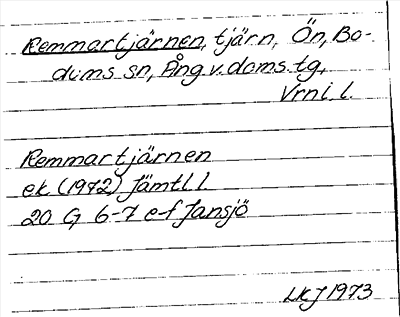 Remmartjärnen, tjärn, Ön, Bo-
dums sn, Ång. v. doms. tg,
Vrnl. l.
Remmartjärnen
ek (1972) Jämtl l
20 G 6-7 e-f Jansjö
LKJ 1973